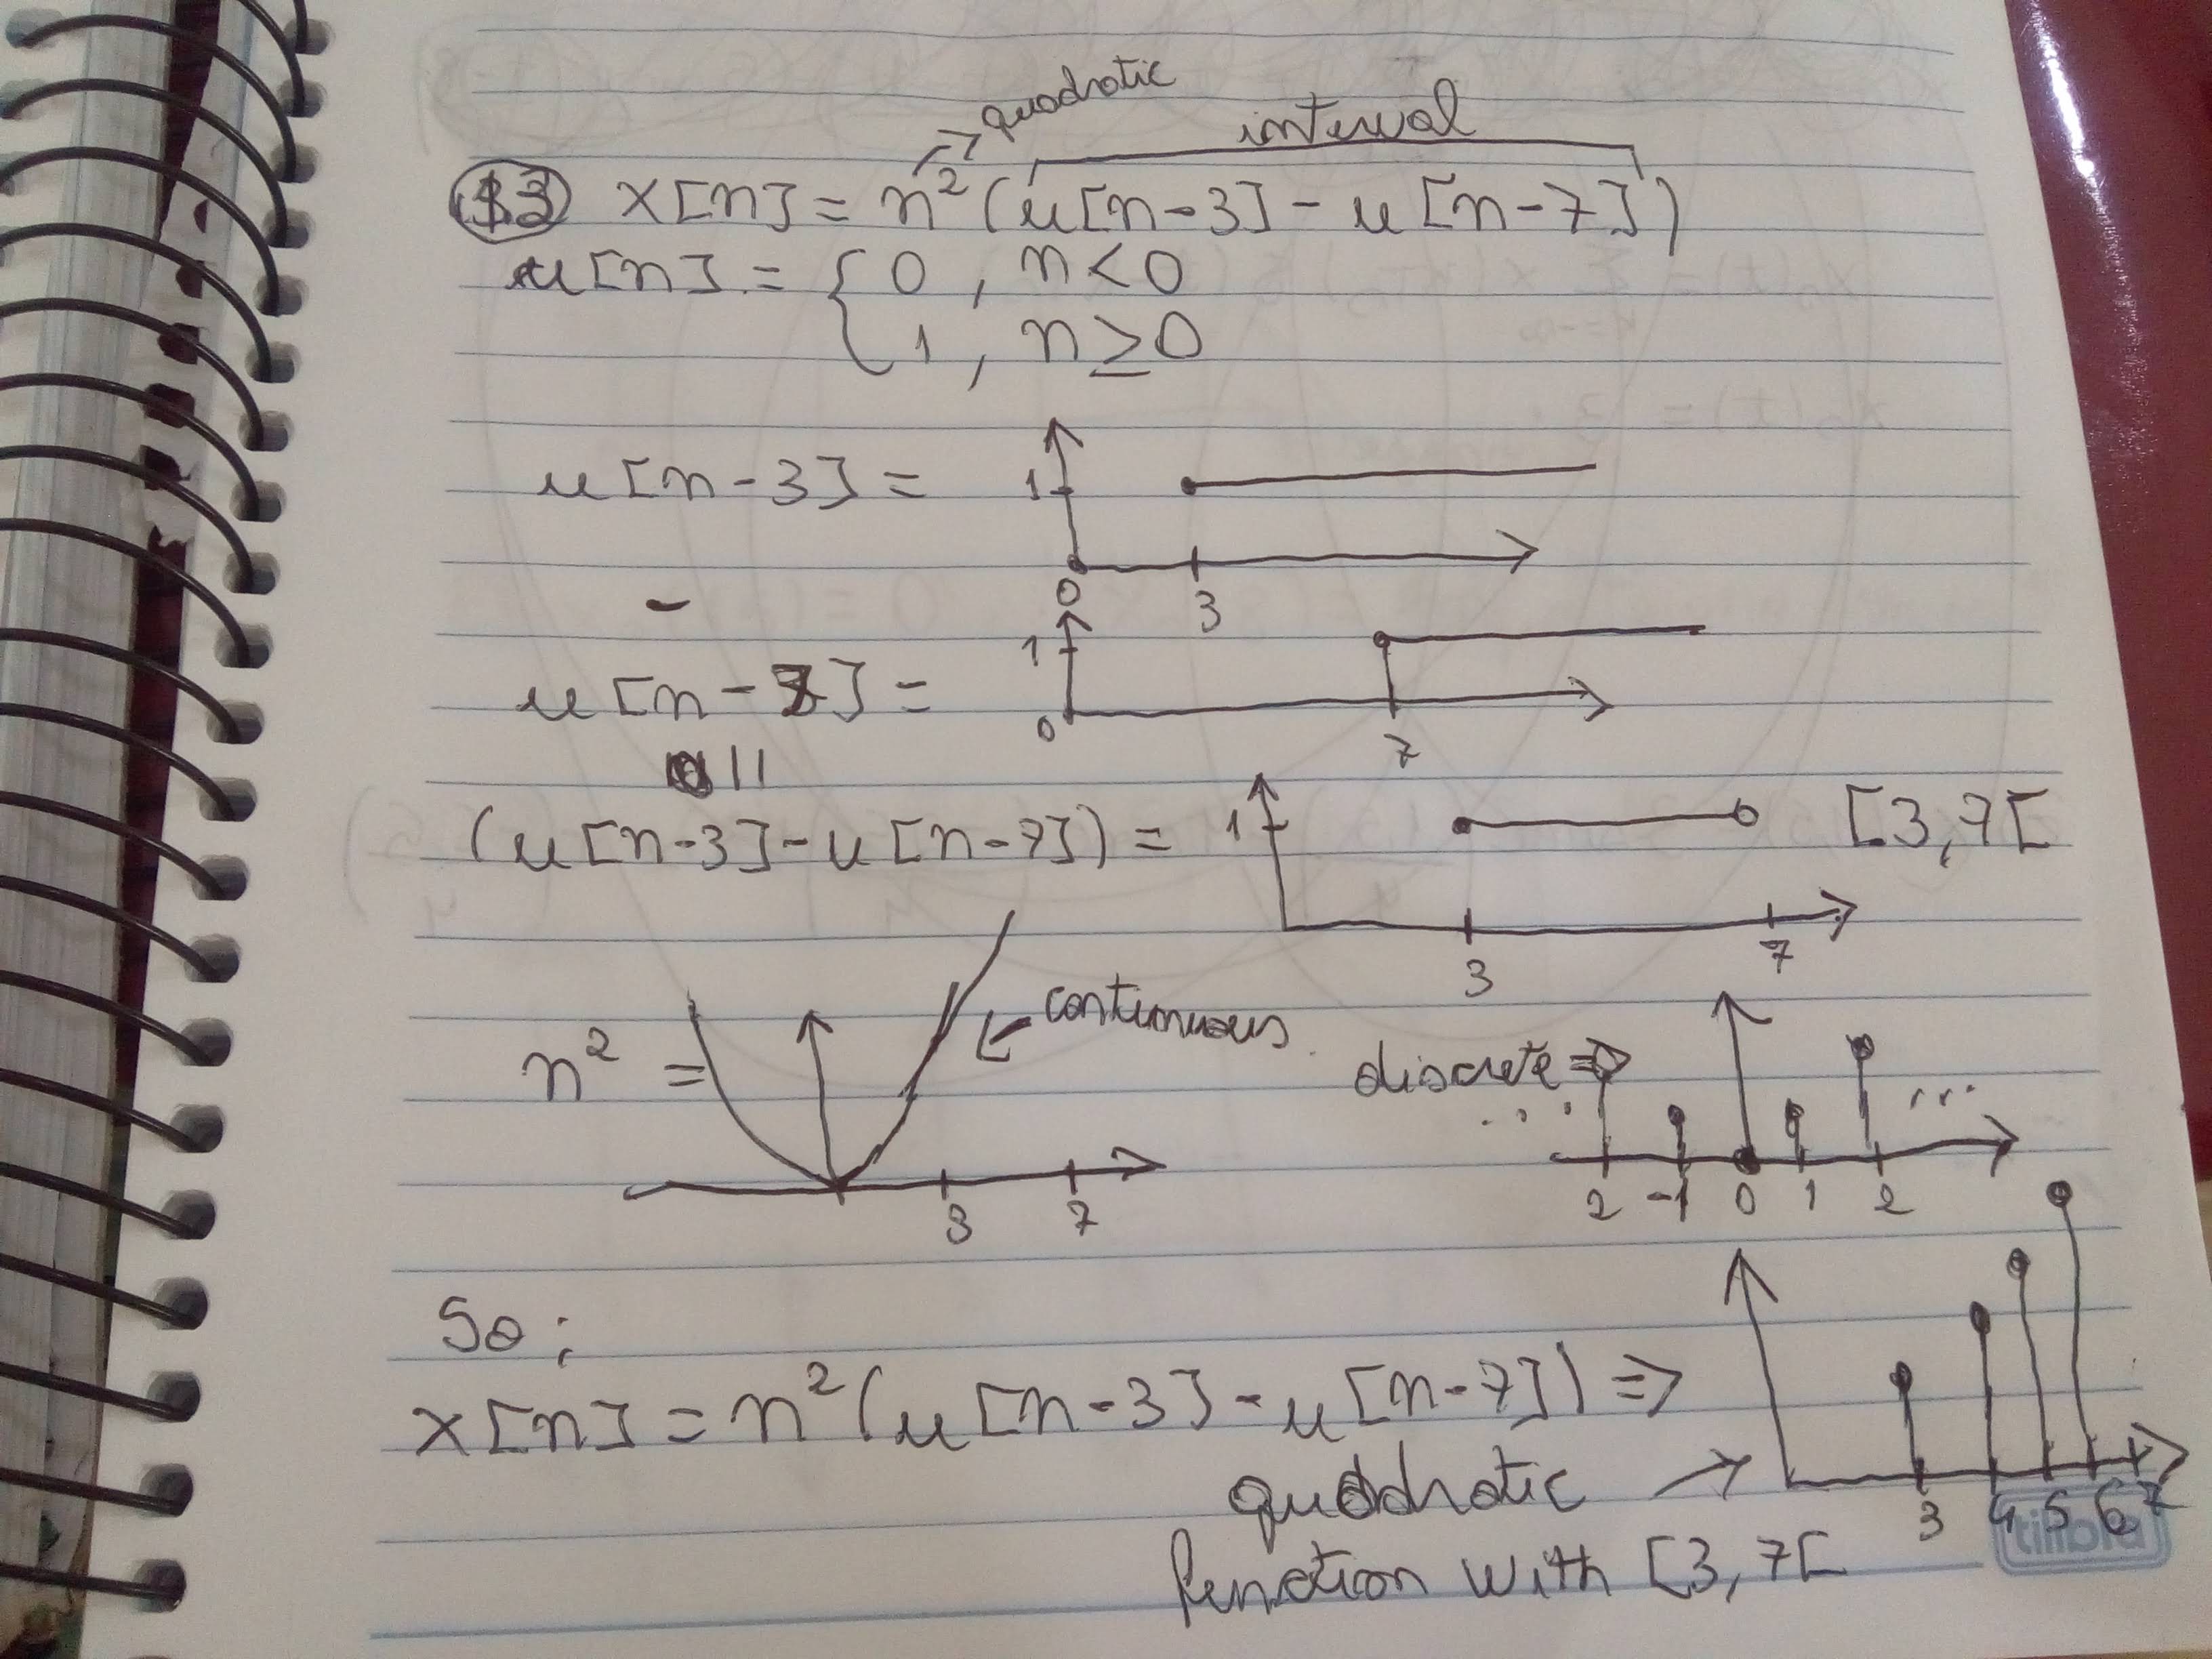 quadratic
interval
13 x[n] = n²(u[n-3] - u[n-7])
u[n] = { 0 , n<0
1 , n≥0
u[n-3] =
1
0 3
-
u[n-7] =
1
0 7
||
(u[n-3]-u[n-7]) = 1 [3,7[
3 7
n² =
continuous
3 7
discrete ⇒
... ...
2 -1 0 1 2
So;
x[n] = n²(u[n-3] - u[n-7]) ⇒
3 4 5 6 7
quadratic →
function with [3,7[
tilibra